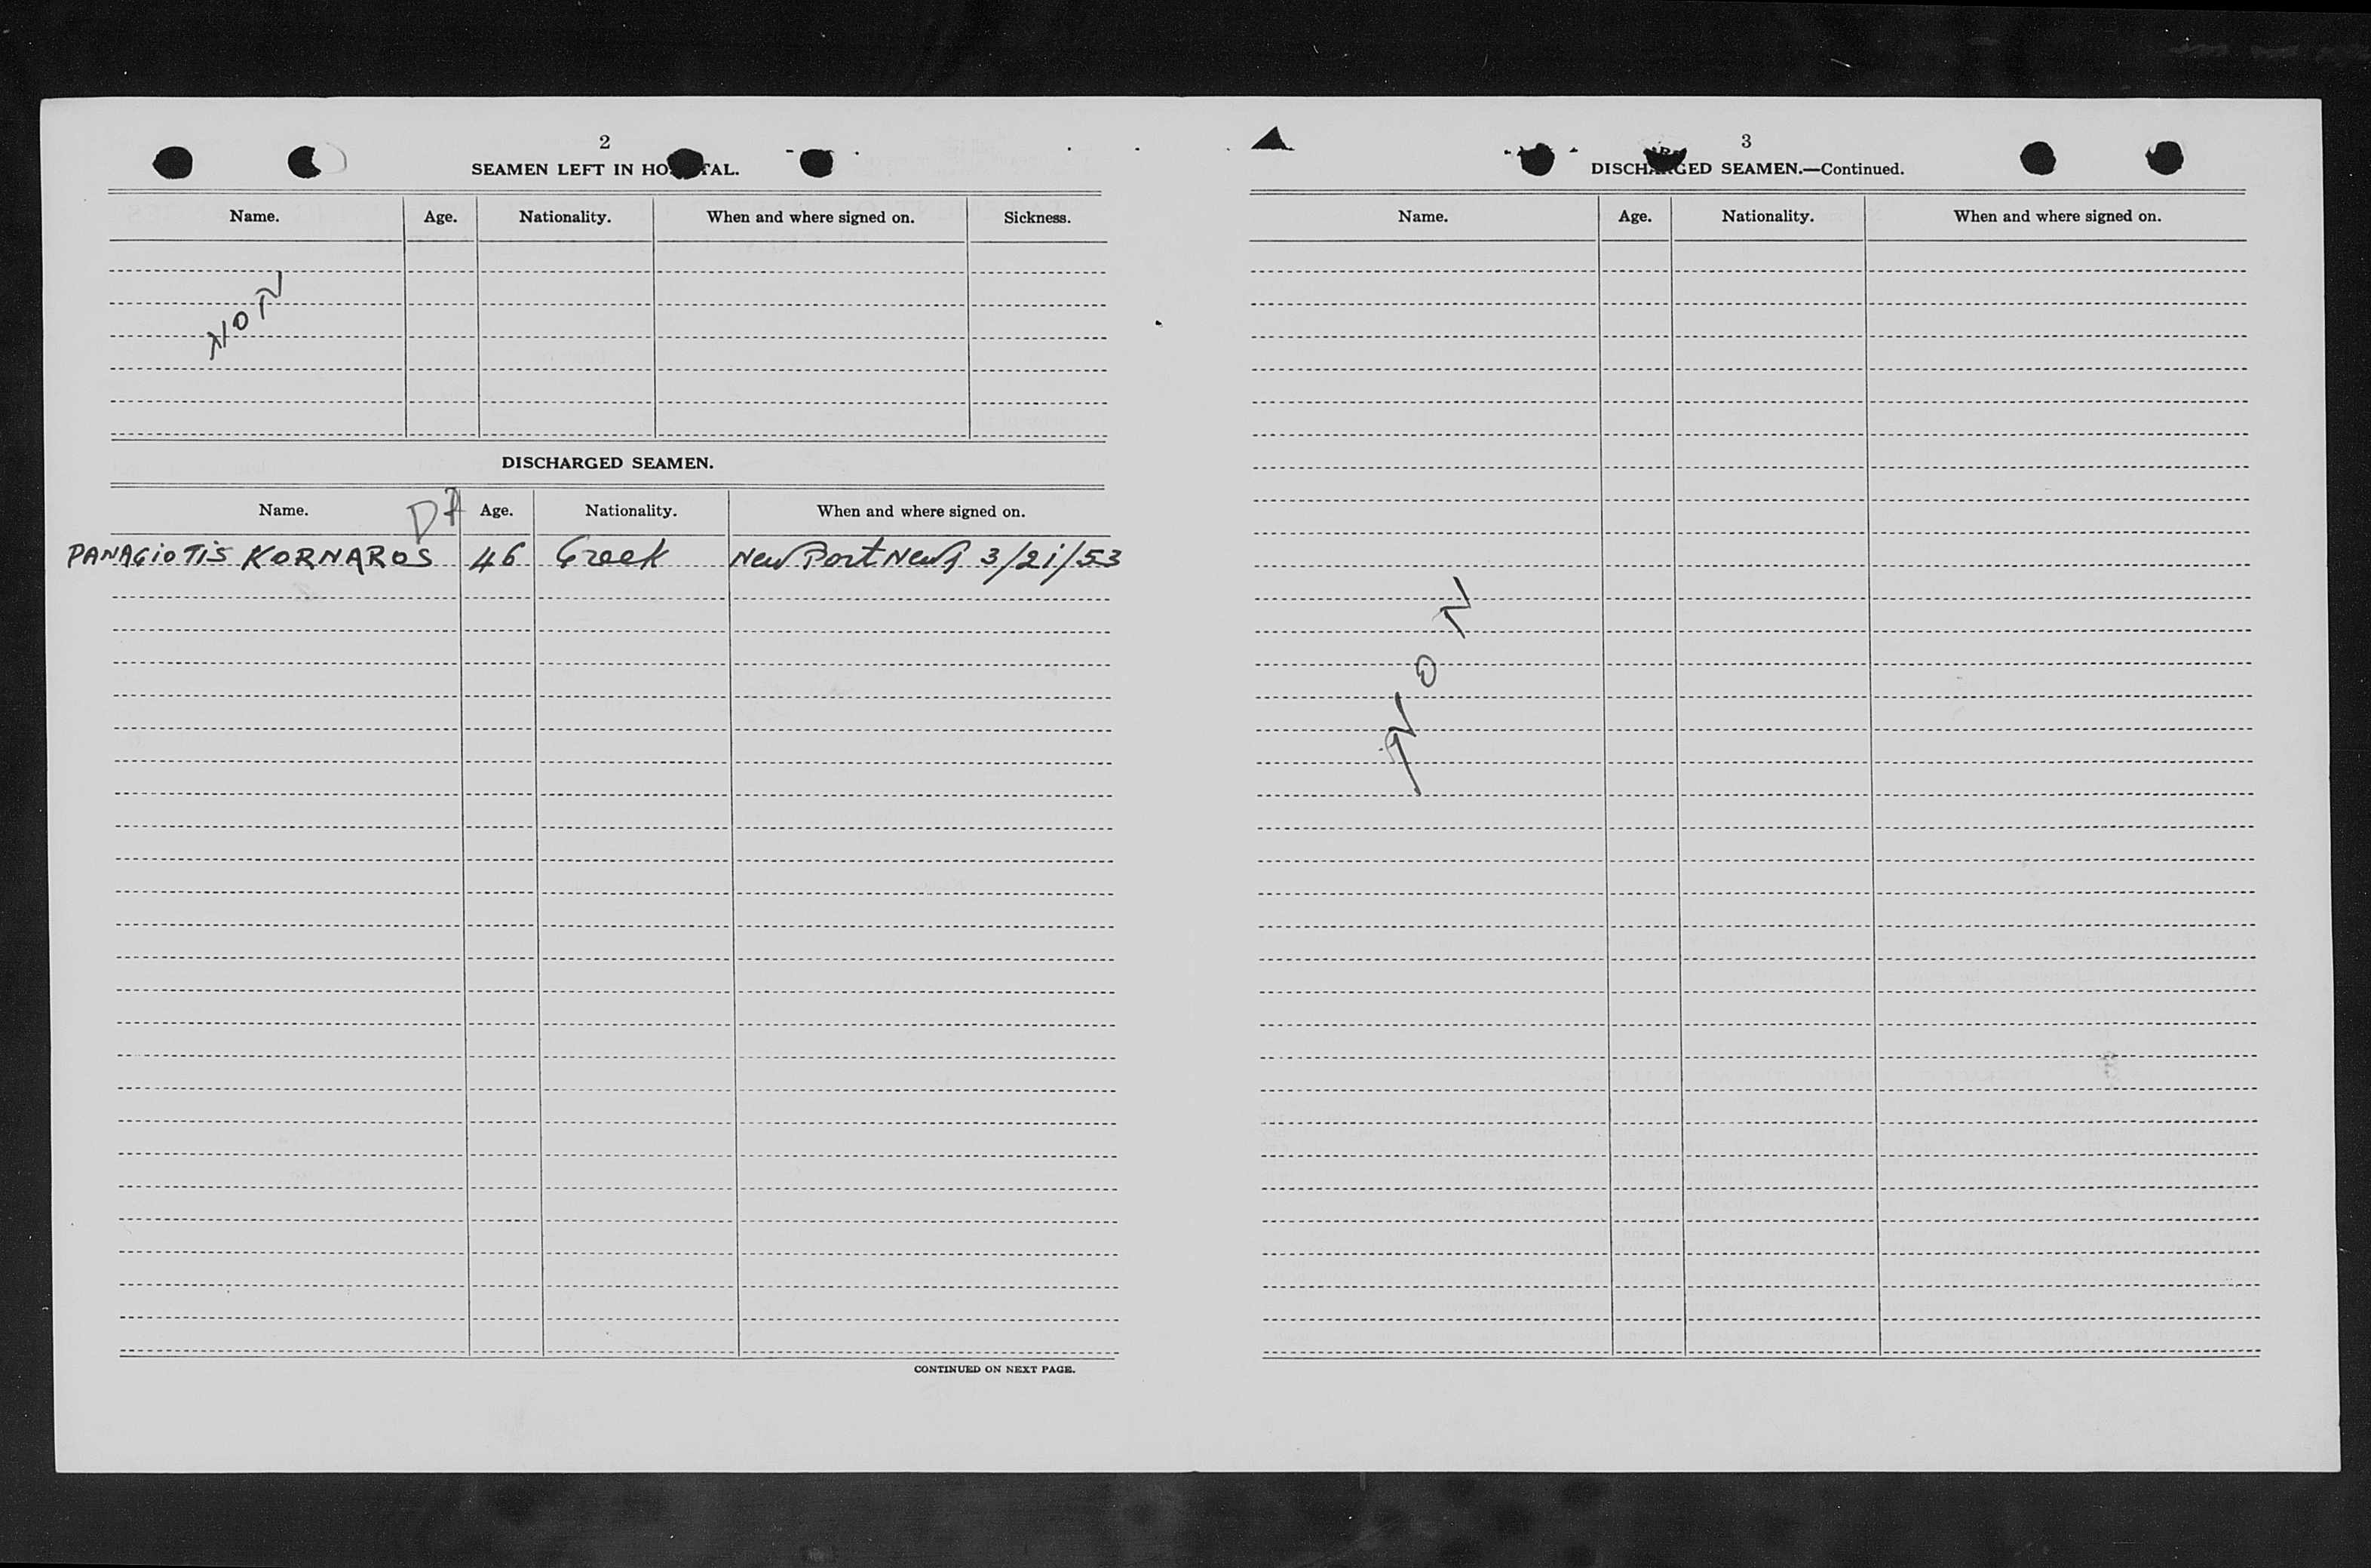 2
SEAMEN LEFT IN HO TAL.
Name. Age. Nationality. When and where signed on. Sickness.
NON
DISCHARGED SEAMEN.
Name. Age. Nationality. When and where signed on.
PANAGIOTIS KORNAROS 46 Greek New Port News 3/21/53
CONTINUED ON NEXT PAGE.
3
DISCHARGED SEAMEN.—Continued.
Name. Age. Nationality. When and where signed on.
NON